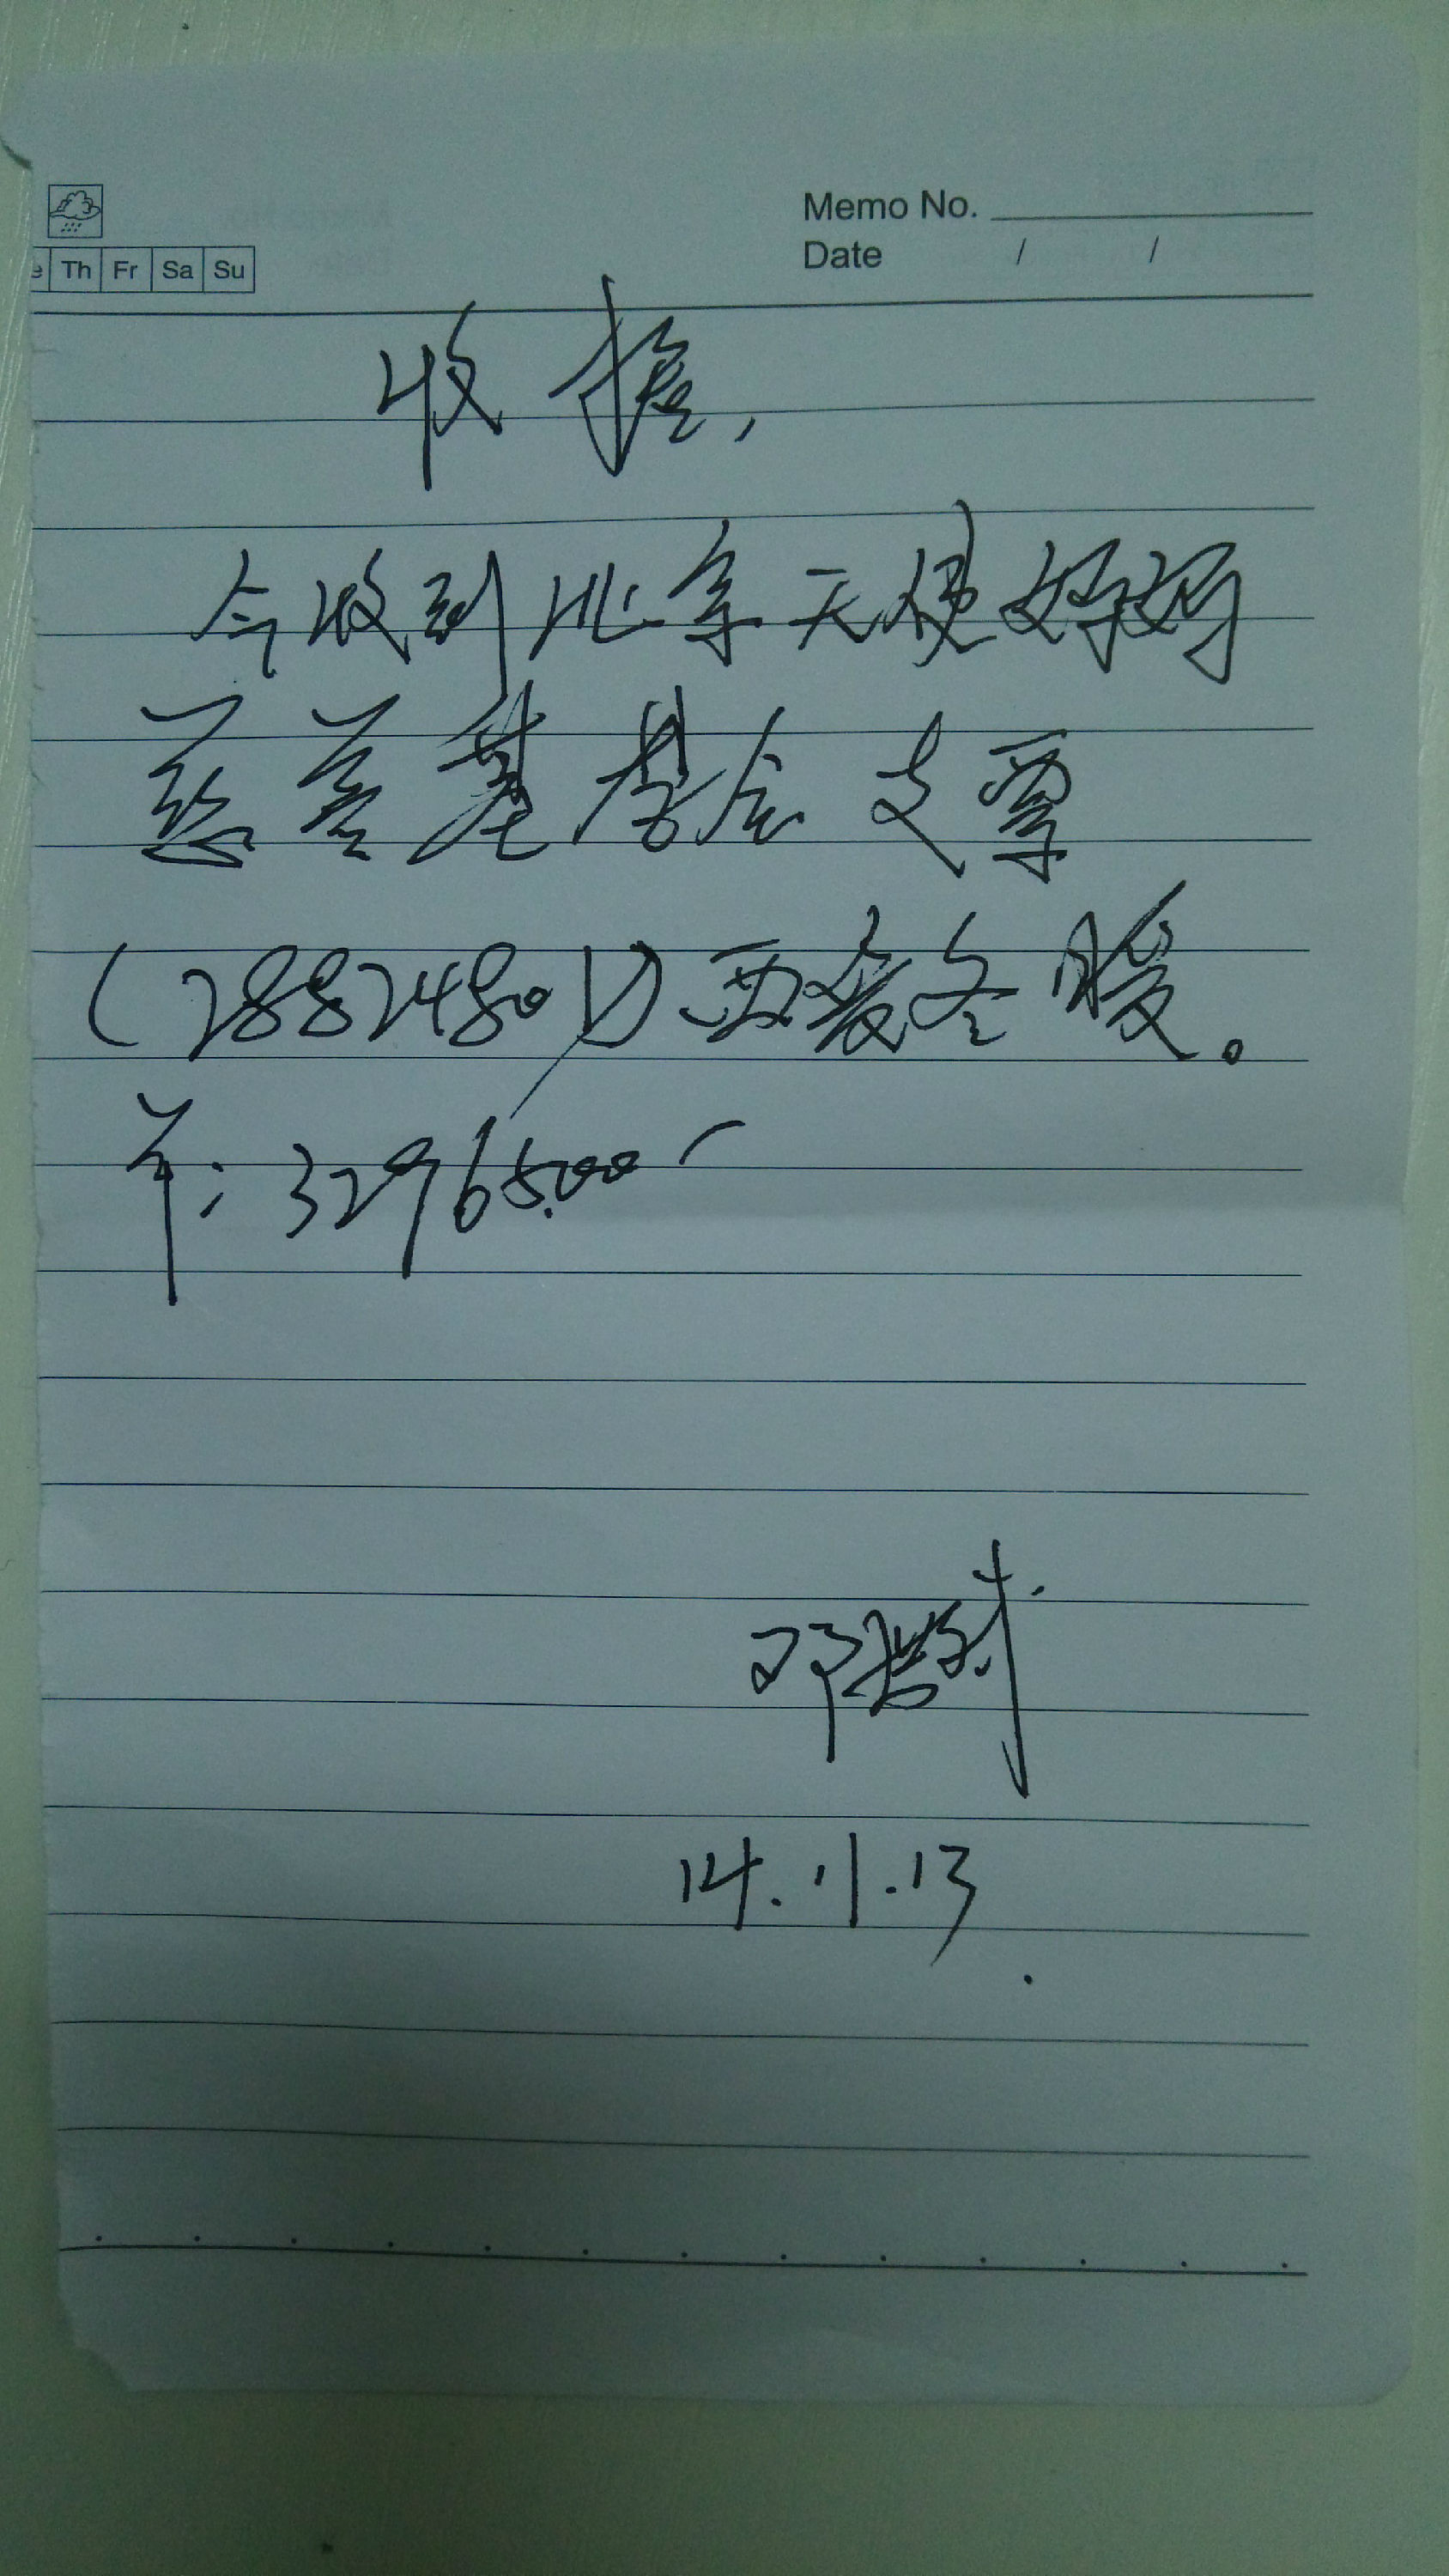 Memo No.
Date / /
e Th Fr Sa Su
收据,
今收到北京天使妈妈
慈善基金会支票
(28824801)西爱冬暖。
羊:32965.00
邓
14.11.13